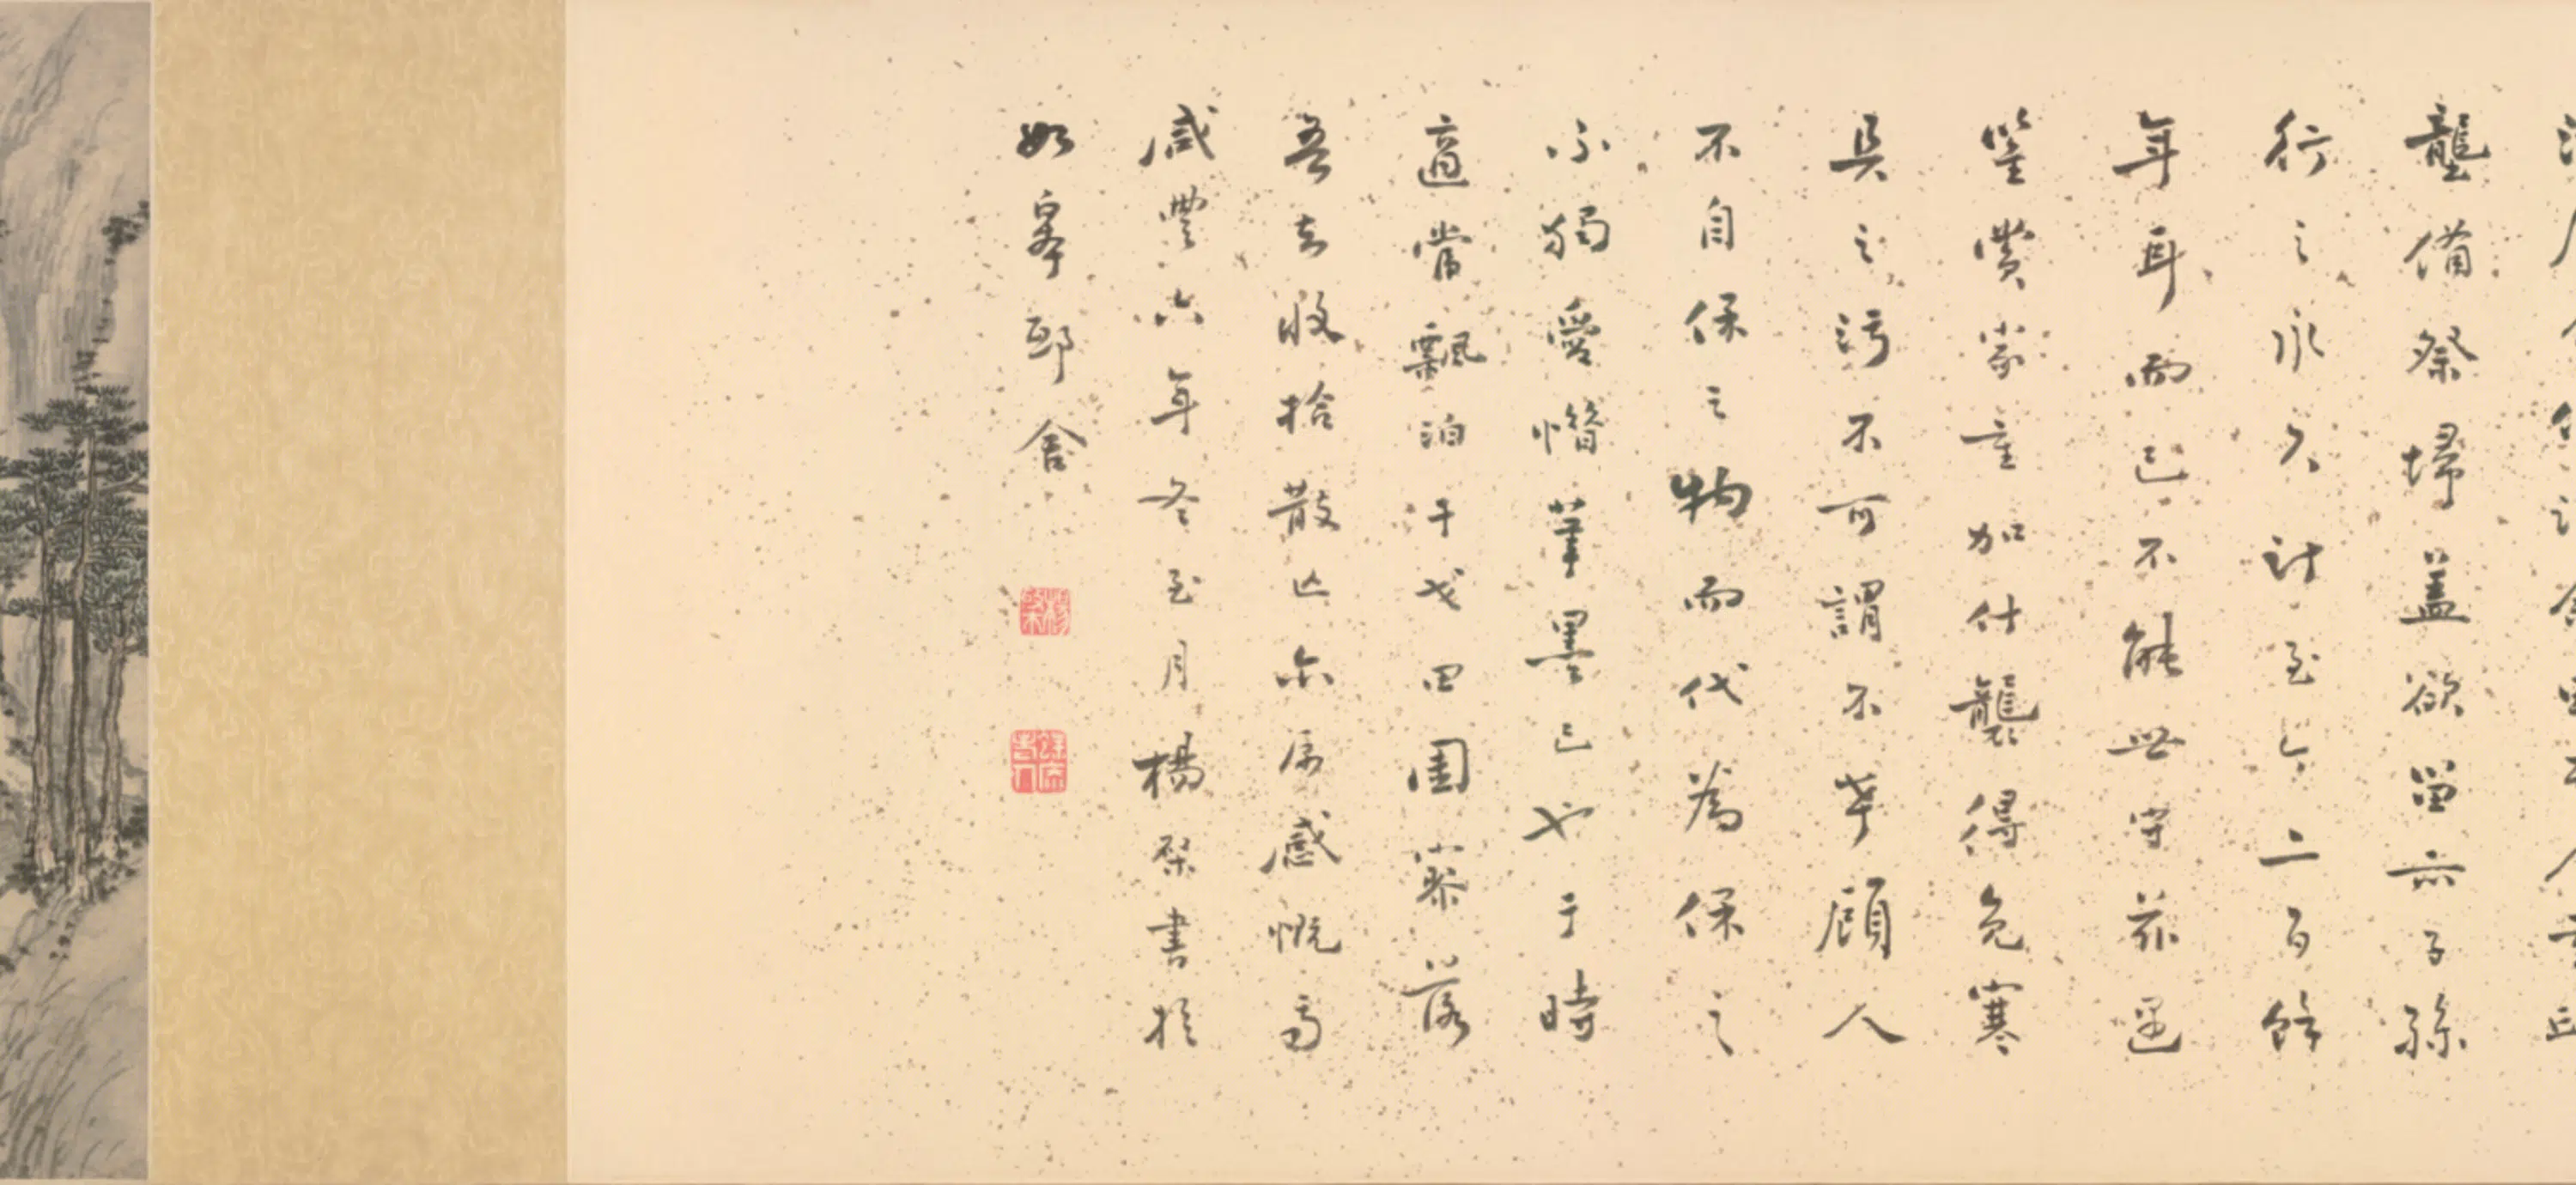 壟備祭埽蓋欲留示子孫
行之永久計至今二百餘
年耳而已不能世守茲遇
筐賞家重加什襲得免寒
具之污不可謂不幸顧人
不自保之物而代為保之
不獨愛惜筆墨已也于時
適當飄泊干戈田園寥落
吾友收拾散亡亦属感慨焉
咸豐六年冬至月楊棨書於
如皋邸舍